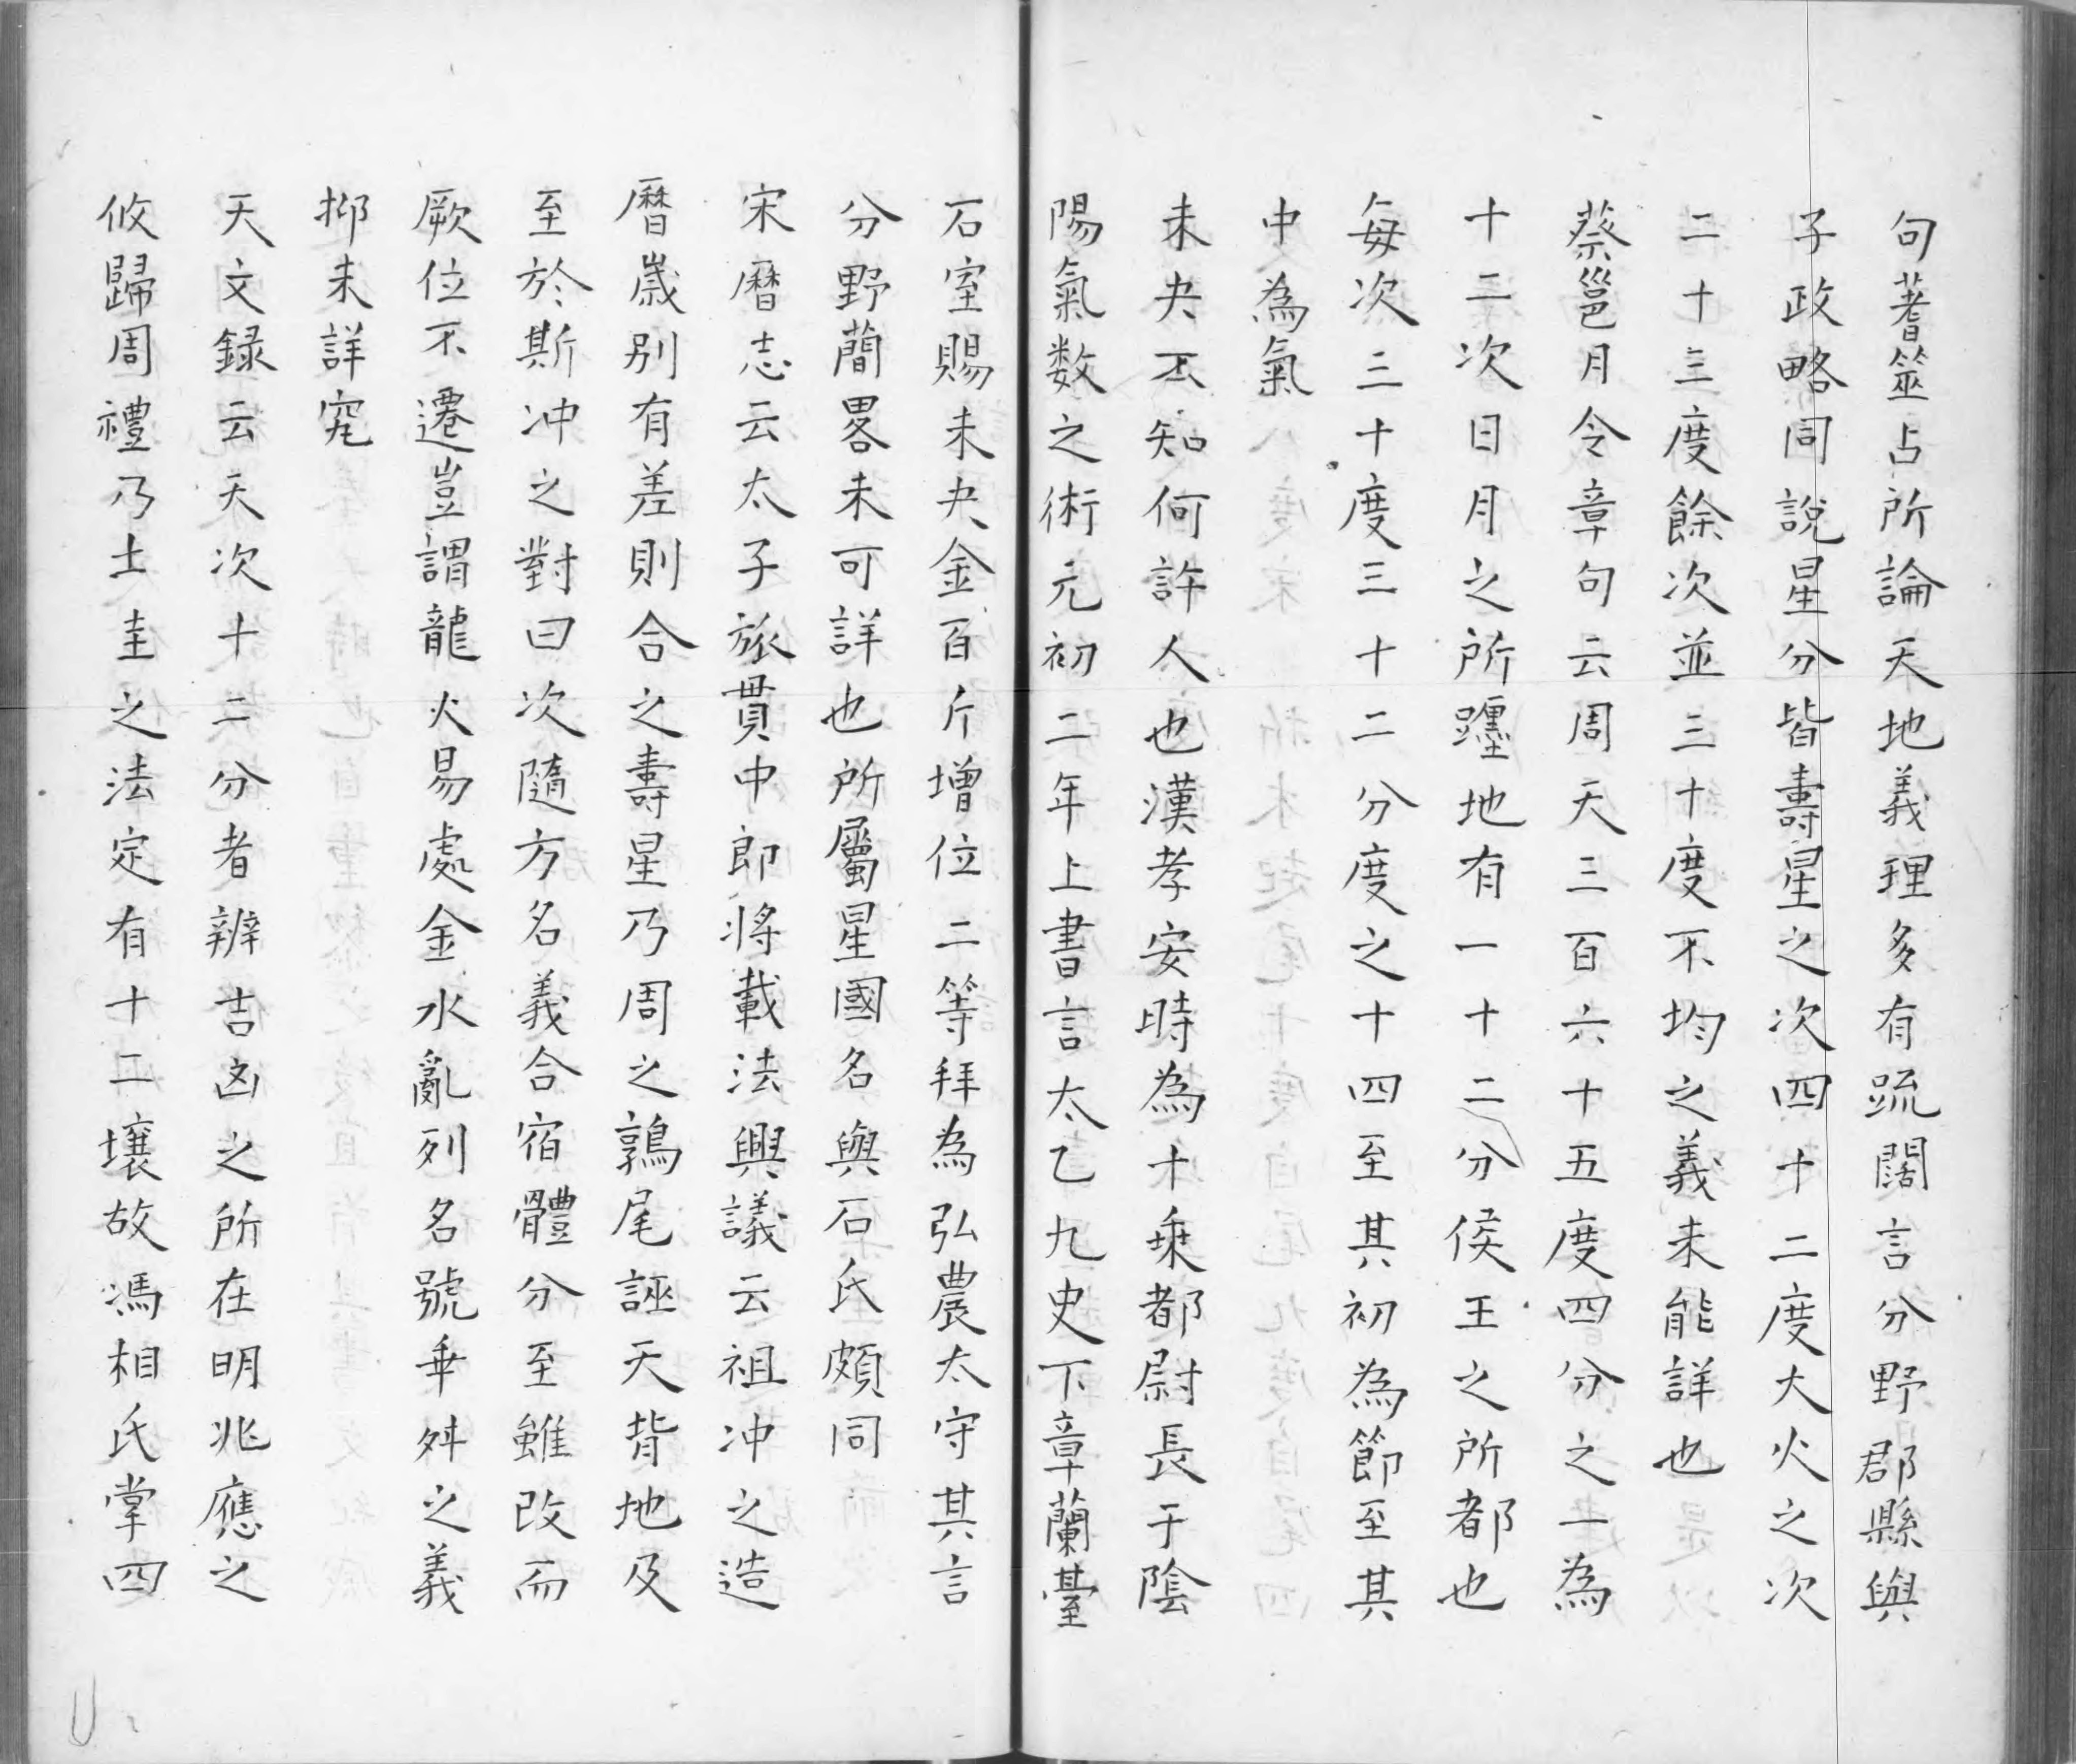 句蓍筮占所論天地義理多有疏闊言分野郡縣與
子政略同說星分皆壽星之次四十二度大火之次
二十三度餘次並三十度不均之義未能詳也
蔡邕月令章句云周天三百六十五度四分之一為
十二次日月之所躔地有一十二分侯王之所都也
每次三十度三十二分度之十四至其初為節至其
中為氣
未央不知何許人也漢孝安時為十乗都尉長于陰
陽氣数之術元初二年上書言太乙九史下章蘭臺
石室賜未央金百斤增位二等拜為弘農太守其言
分野蕳畧未可詳也所屬星國名與石氏頗同
宋曆志云太子旅賁中郎將載法興議云祖冲之造
曆歳别有差則合之壽星乃周之鶉尾誣天背地及
至於斯冲之對曰次隨方名義合宿體分至雖改而
厥位不遷豈謂龍火易處金水亂列名號乖舛之義
抑未詳究
天文録云天次十二分者辨吉凶之所在明兆應之
攸歸周禮乃土圭之法定有十二壤故馮相氏掌四